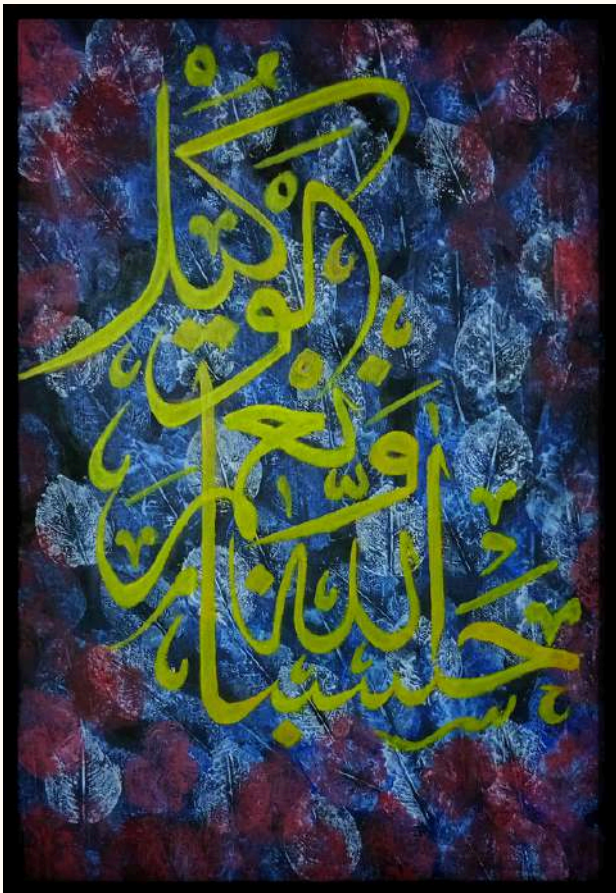 حَسْبُنَا اللّٰهُ
وَنِعْمَ
الْوَكِيْلُ